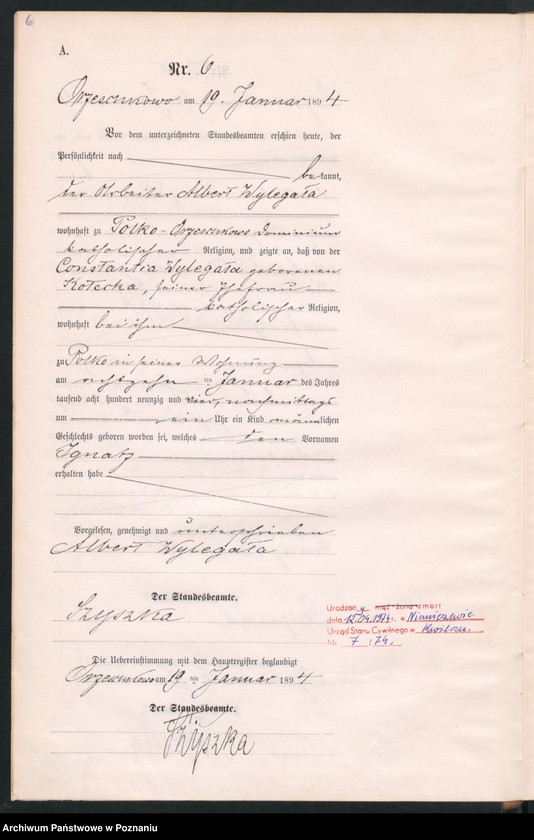 6
A.
Nr. 6
Orzeschkowo am 19. Januar 1894
Vor dem unterzeichneten Standesbeamten erschien heute, der
Persönlichkeit nach
bekannt,
der Arbeiter Albert Wylegała
wohnhaft zu Polko - Orzeschkowo Dominium
katholischer Religion, und zeigte an, daß von der
Constantia Wylegała geborenen
Kotecka, seiner Ehefrau
katholischer Religion,
wohnhaft bei ihm
zu Polko in seiner Wohnung
am achtzehn ten Januar des Jahres
tausend acht hundert neunzig und vier, nachmittags
um ein Uhr ein Kind männlichen
Geschlechts geboren worden sei, welches den Vornamen
Ignatz
erhalten habe
Vorgelesen, genehmigt und unterschrieben
Albert Wylegała
Der Standesbeamte.
Szyszka
Die Uebereinstimmung mit dem Hauptregister beglaubigt
Orzeschkowo am 19 ten Januar 1894
Der Standesbeamte.
Szyszka
Urodzony mąż-żona-zmarł
dnia 12.04.1974 r. w
Urząd Stanu Cywilnego w Kwilczu.
Nr 7 / 74.
Archiwum Państwowe w Poznaniu